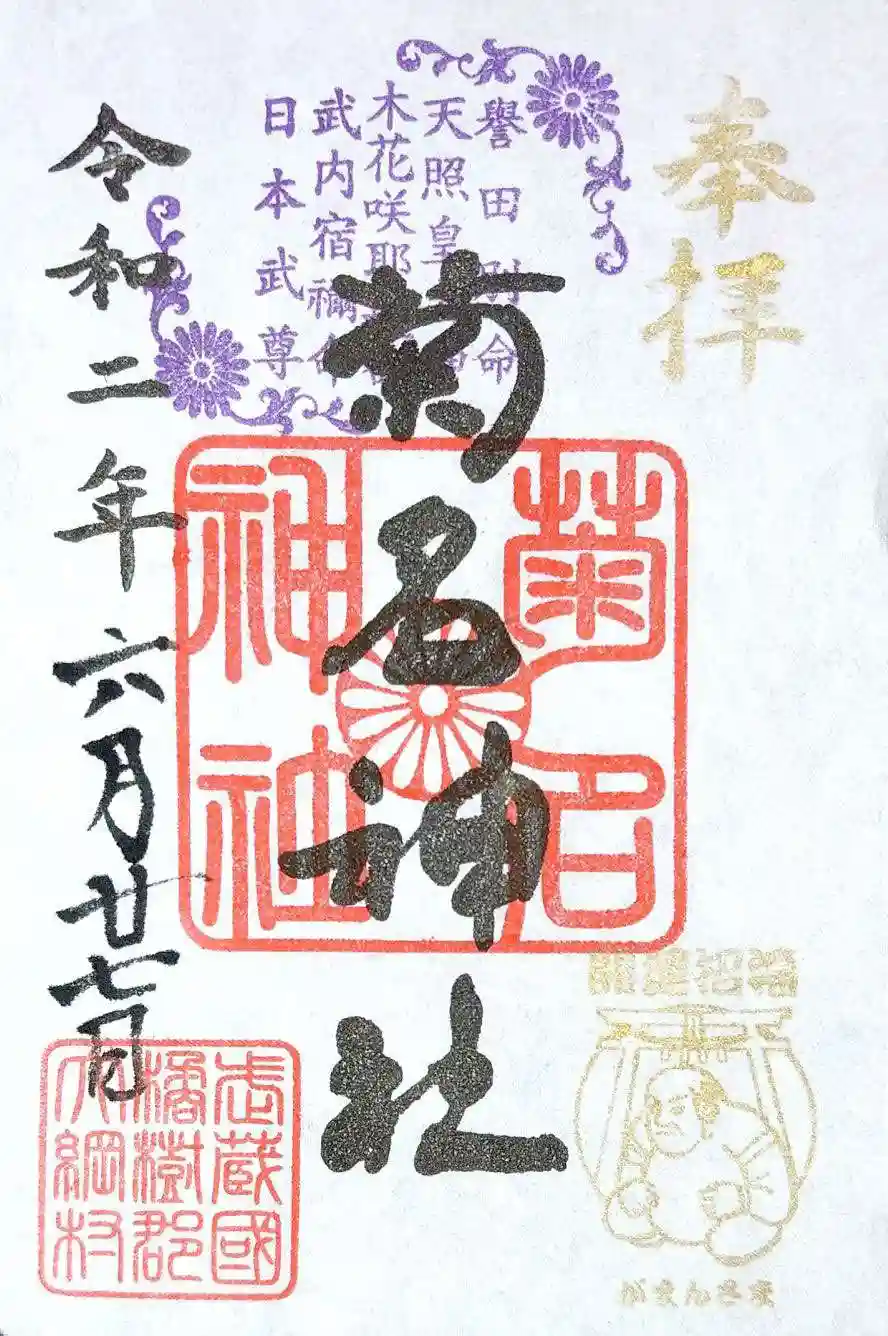 奉拝
譽田別命
天照皇
木花咲耶
武内宿禰命
日本武尊
菊名神社
菊名
神社
令和二年六月廿七日
武蔵國
橘樹郡
大綱村
開運招福
がまんさま